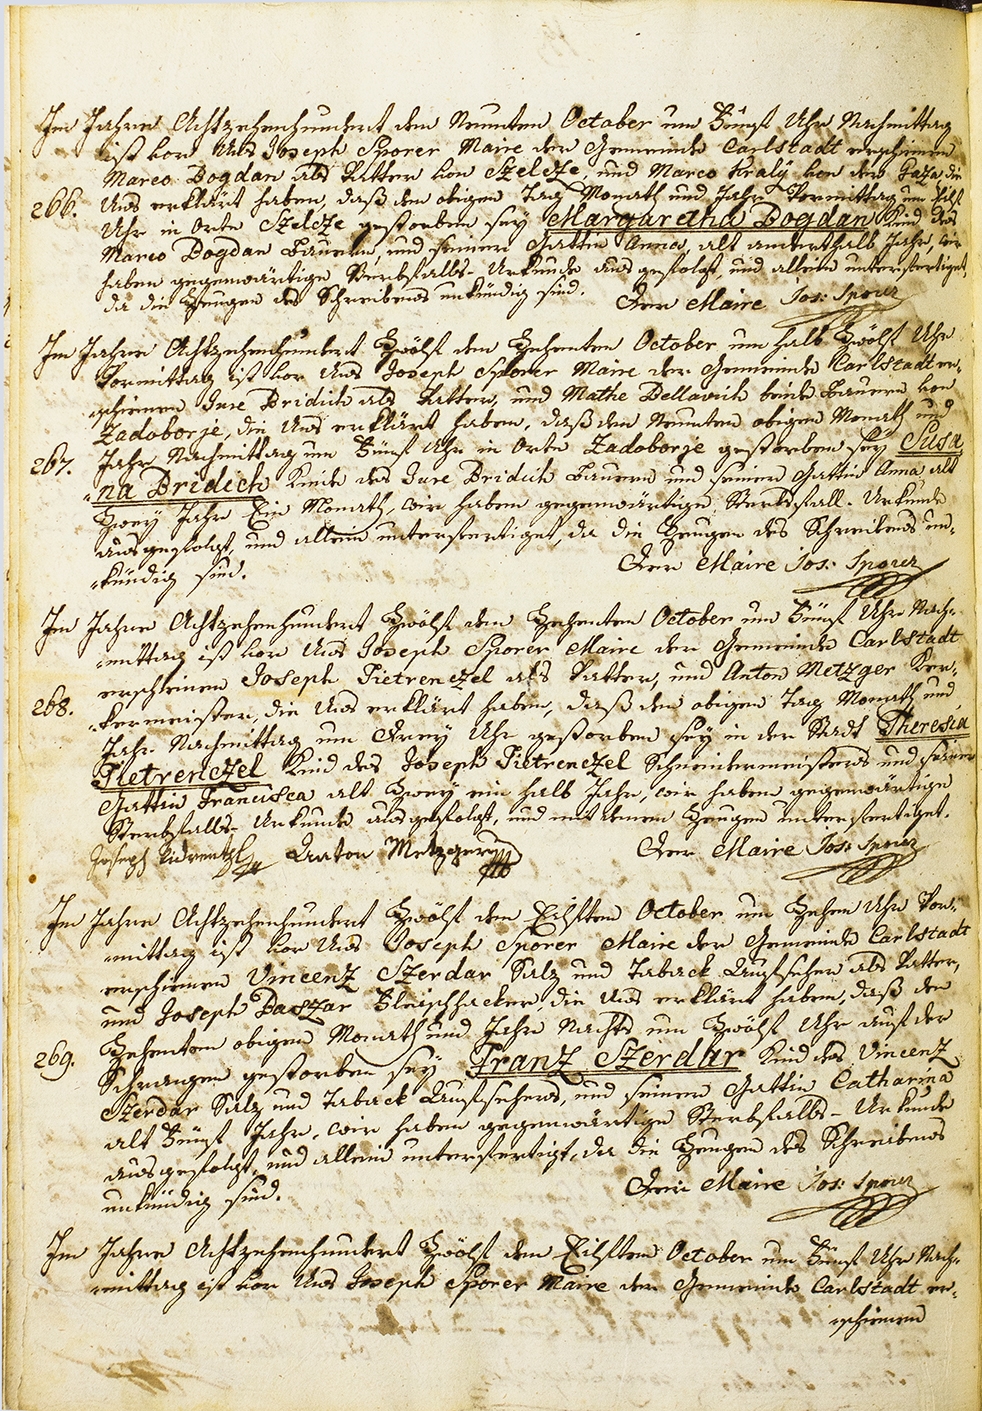 Im Jahre Achtzehenhundert den Neunten October um Fünf Uhr Nachmittag
ist vor Uns Joseph Sporer Maire der Gemeinde Carlstadt erschienen
Marco Bogdan als Vatter von Szelcze, und Marco Kraly von der Gaza die
266. Uns erklärt haben, daß den obigen Tag Monath und Jahr Vormittag um
Uhr in Orte Szelcze gestorben sey Margaretha Bogdan Kind des
Marco Bogdan Bauern, und seiner Gattin Anna, alt anderthalb Jahr, wir
haben gegenwärtige Sterbfalls-Urkunde ausgefolgt, und allein unterfertiget,
da die Zeugen des Schreibens unkündig sind. Der Maire Jos: Sporer
Im Jahre Achtzehenhundert Zwölf den Zehenten October um halb Zwölf Uhr
Vormittag ist vor Uns Joseph Sporer Maire der Gemeinde Carlstadt er-
schienen Jure Bridich als Vatter, und Mathe Bellavich beide Bauern von
Zadoborje, die Uns erklärt haben, daß den Neunten obigen Monath und
267. Jahr Nachmittag um Fünf Uhr in Orte Zadoborje gestorben sey Susa
-na Bridich Kind des Jure Bridich Bauern und seiner Gattin Anna alt
Zwey Jahr Ein Monath, wir haben gegenwärtige Sterbfall-Urkunde
ausgefolgt, und allein unterfertiget, da die Zeugen des Schreibens un-
-kündig sind. Der Maire Jos: Sporer
Im Jahre Achtzehenhundert Zwölf den Zehenten October um Fünf Uhr Nach-
-mittag ist vor Uns Joseph Sporer Maire der Gemeinde Carlstadt
erschienen Joseph Pietrenczel als Vatter, und Anton Metzger Ker-
268. -kermeister, die Uns erklärt haben, daß den obigen Tag Monath und
Jahr Nachmittag um Drey Uhr gestorben sey in der Stadt Theresia
Pietrenczel Kind des Joseph Pietrenczel Schneidermeisters und seiner
Gattin Francisca alt Zwey ein halb Jahr, wir haben gegenwärtige
Sterbfalls-Urkunde ausgefolgt, und mit denen Zeugen unterfertiget.
Joseph Anton Metzger Der Maire Jos: Sporer
Im Jahre Achtzehenhundert Zwölf den Eilften October um Zehen Uhr Vor-
-mittag ist vor Uns Joseph Sporer Maire der Gemeinde Carlstadt
erschienen Vincenz Szerdar Salz und Taback Aufseher als Vatter,
und Joseph Baszar Fleischhacker, die Uns erklärt haben, daß den
Zehenten obigen Monath und Jahr Nachts um Zwölf Uhr auf der
269. Schrangen gestorben sey Franz Szerdar Kind des Vincenz
Szerdar Salz und Taback Aufsehers, und seiner Gattin Catharina
alt Fünf Jahr, wir haben gegenwärtige Sterbfalls-Urkunde
ausgefolgt, und allein unterfertigt, da die Zeugen des Schreibens
unkündig sind. Der Maire Jos: Sporer
Im Jahre Achtzehenhundert Zwölf den Eilften October um Fünf Uhr Nach-
-mittag ist vor Uns Joseph Sporer Maire der Gemeinde Carlstadt er-
-schienen